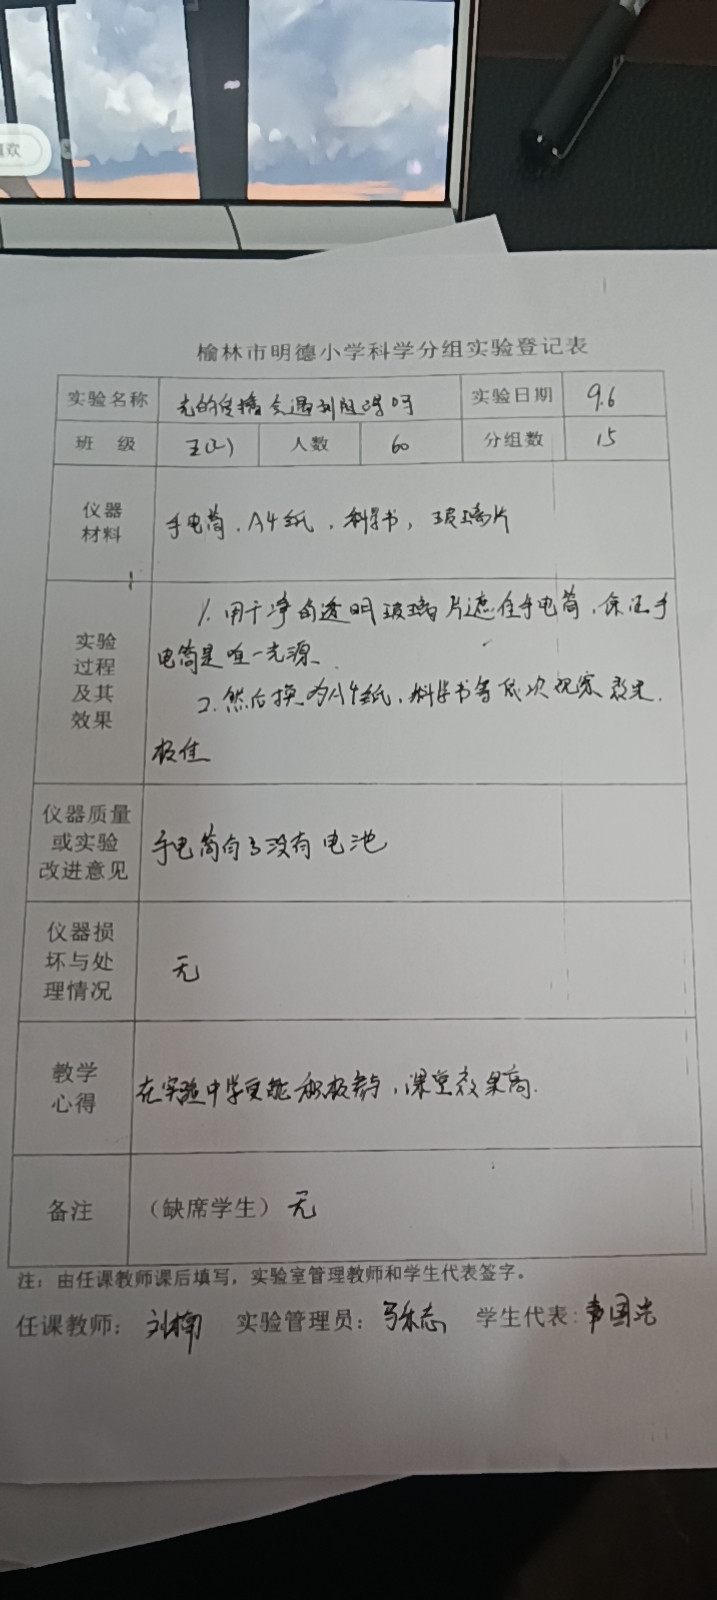 欢
榆林市明德小学科学分组实验登记表
实验名称 光的传播会遇到阻碍吗 实验日期 9.6
班 级 五(2) 人数 60 分组数 15
仪器
材料
手电筒、A4纸,科学书,玻璃片
实验
过程
及其
效果
1. 用干净的透明玻璃片遮住手电筒,保证手
电筒是唯一光源.
2. 然后换为A4纸,科学书等依次观察效果.
极佳
仪器质量
或实验
改进意见
手电筒有 没有电池
仪器损
坏与处
理情况
无
教学
心得
在实验中学生能积极参与,课堂效果高.
备注 (缺席学生) 无
注:由任课教师课后填写,实验室管理教师和学生代表签字。
任课教师: 刘楠 实验管理员: 学生代表: